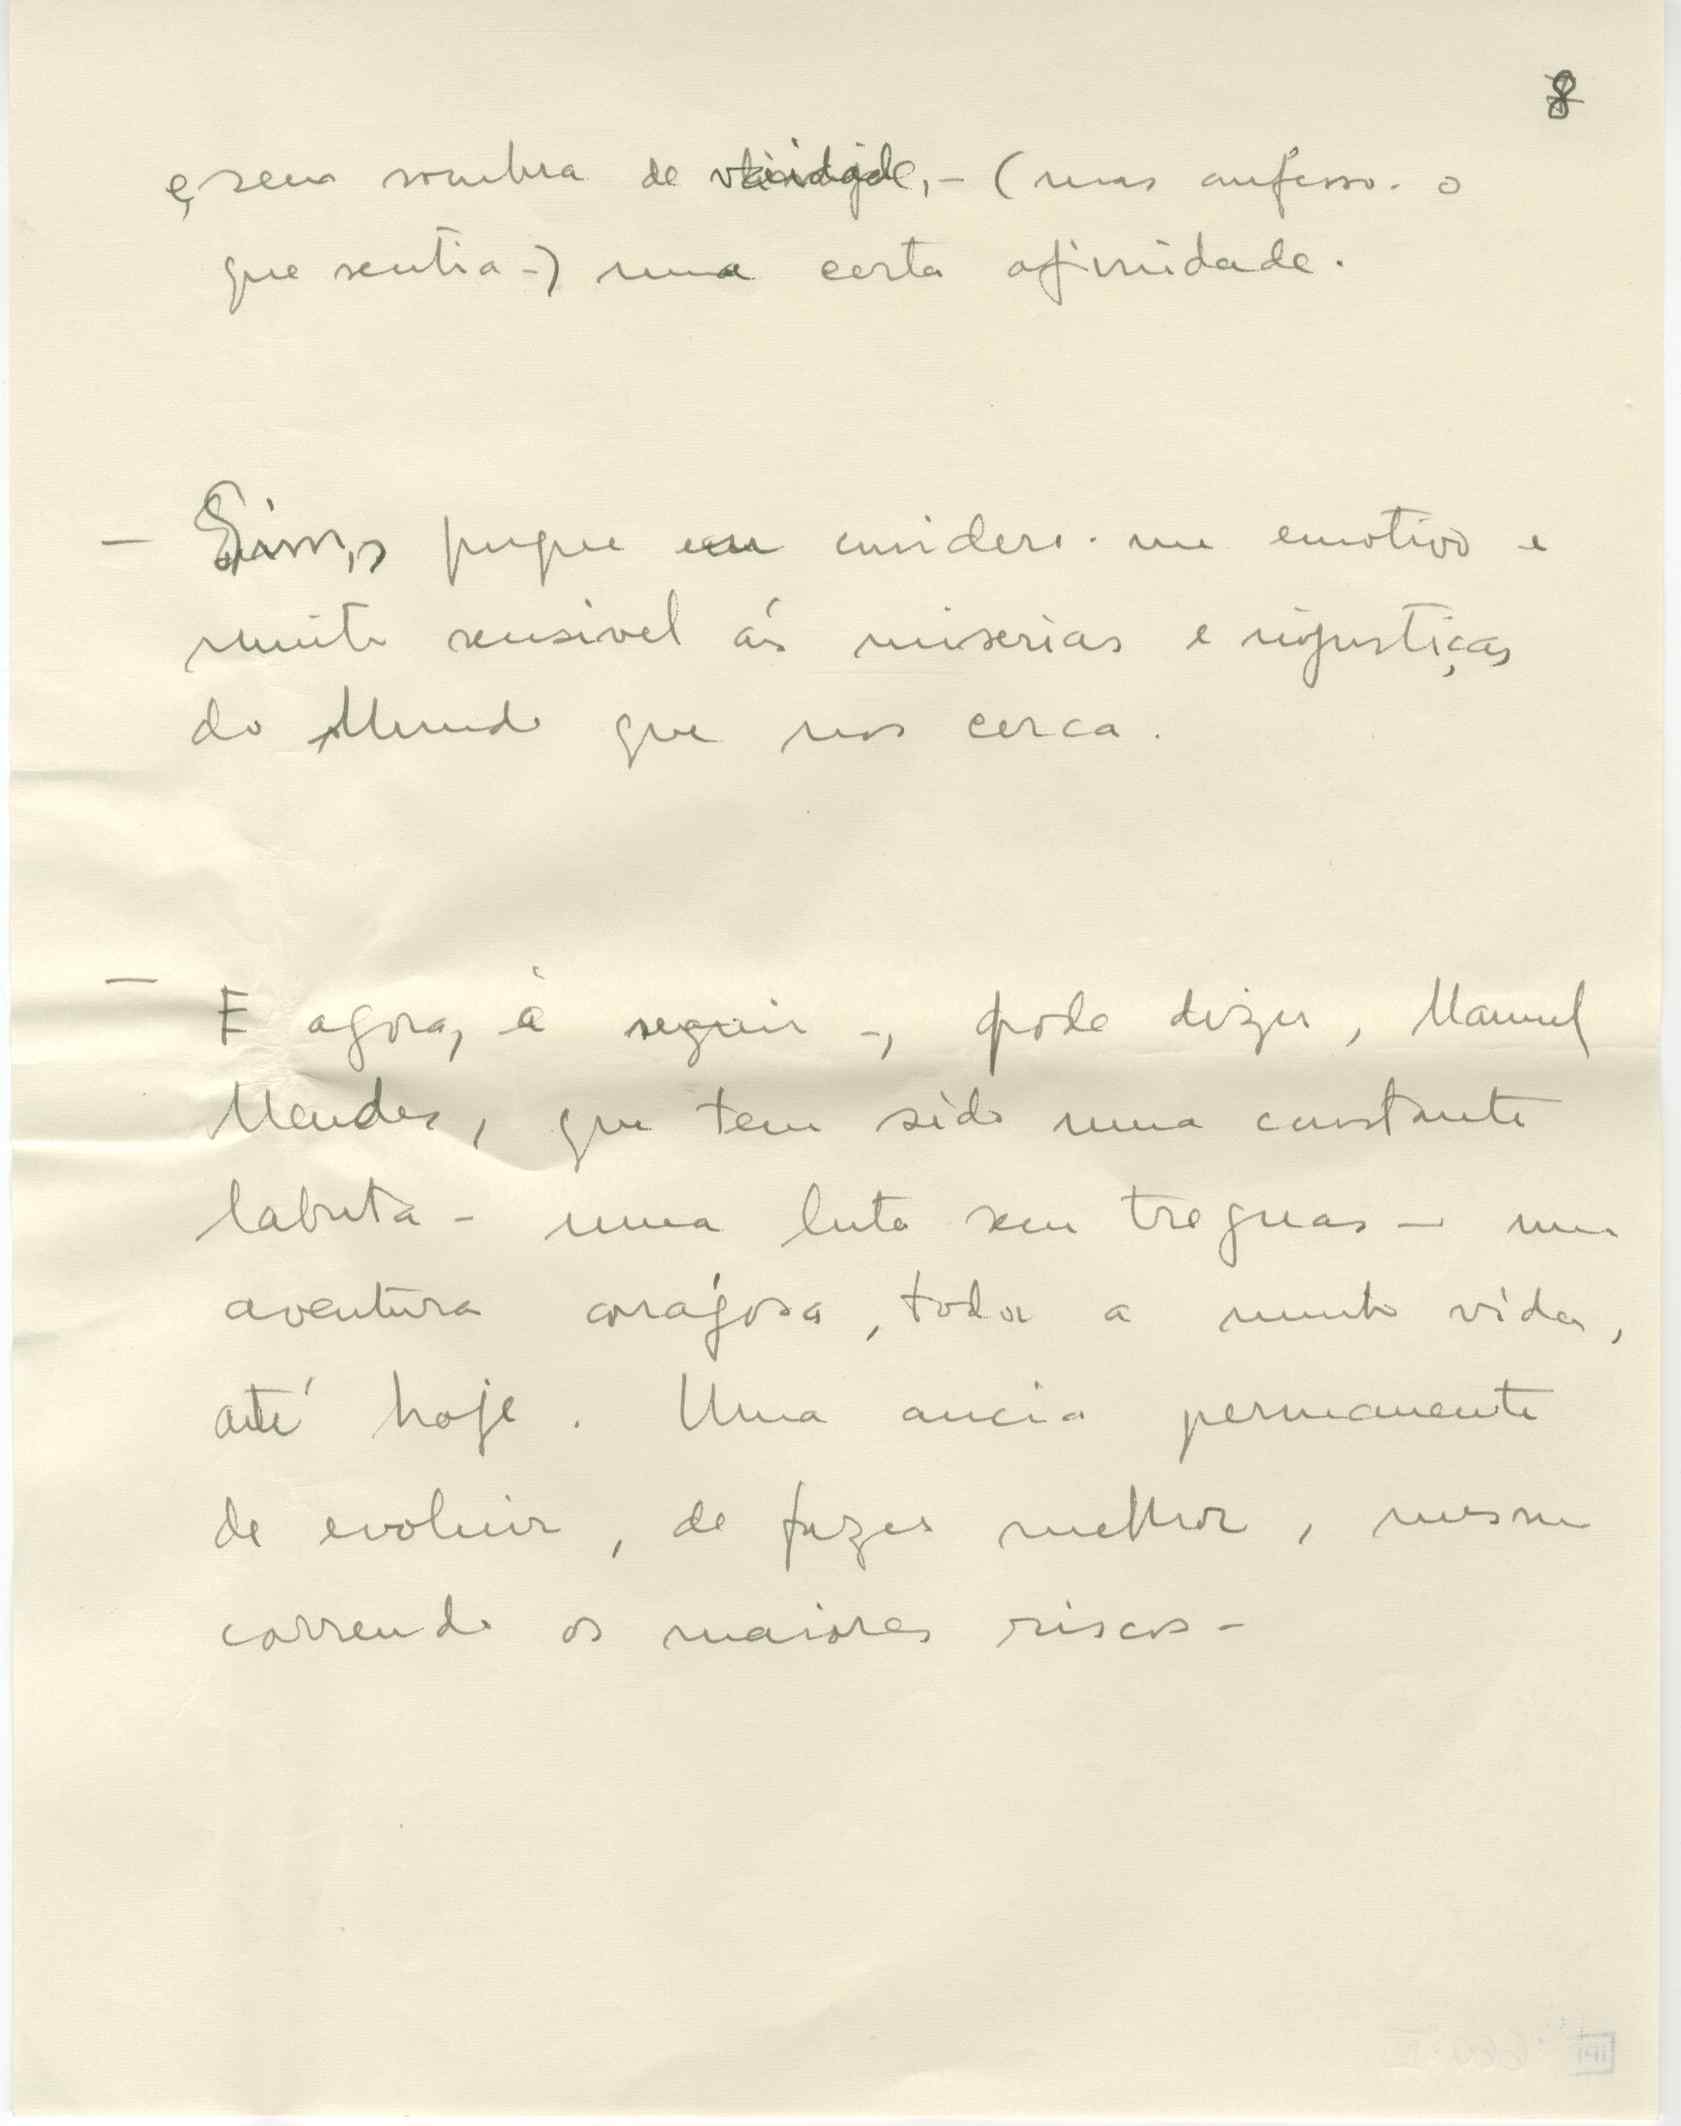 8
e, sem sombra de vaidade, - (mas confesso-o
que sentia -) uma certa afinidade.
- Sim, porque eu considero-me emotivo e
muito sensivel ás miserias e injustiças
do Mundo que nos cerca.
- E agora, á seguir -, pode dizer, Manuel
Mendes, que tem sido uma constante
labuta - uma luta sem treguas - uma
aventura corajosa, toda a minha vida,
até hoje. Uma ancia permanente
de evoluir, de fazer melhor, mesmo
correndo os maiores riscos -